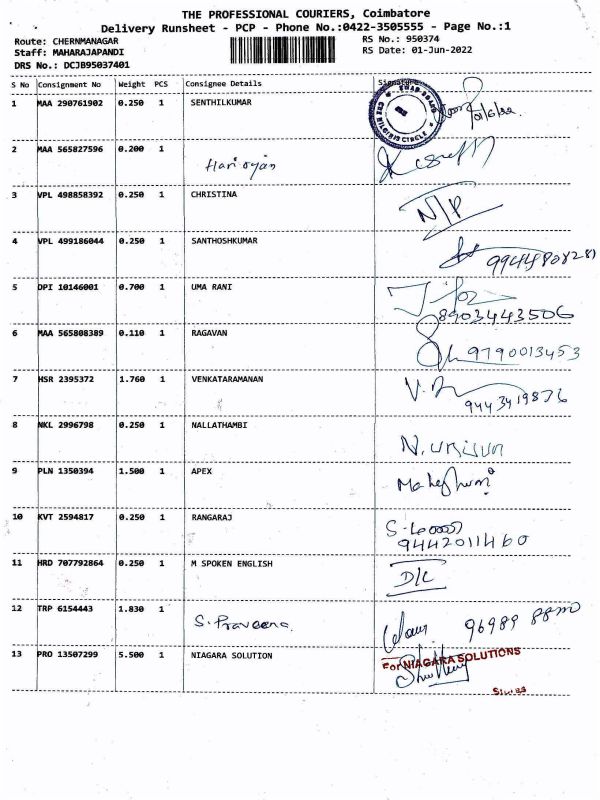 THE PROFESSIONAL COURIERS, Coimbatore
Delivery Runsheet - PCP - Phone No.:0422-3505555 - Page No.:1
Route: CHERNMANAGAR RS No.: 950374
Staff: MAHARAJAPANDI RS Date: 01-Jun-2022
DRS No.: DCJB95037401
S No Consignment No Weight PCS Consignee Details Signature
1 MAA 290761902 0.250 1 SENTHILKUMAR
2 MAA 565827596 0.200 1
3 VPL 498858392 0.250 1 CHRISTINA N/P
4 VPL 499186044 0.250 1 SANTHOSHKUMAR
5 DPI 10146001 0.700 1 UMA RANI
8903443506
6 MAA 565808389 0.110 1 RAGAVAN
9790013453
7 HSR 2395372 1.760 1 VENKATARAMANAN
9443419876
8 NKL 2996798 0.250 1 NALLATHAMBI
9 PLN 1350394 1.500 1 APEX
10 KVT 2594817 0.250 1 RANGARAJ
9442011460
11 HRD 707792864 0.250 1 M SPOKEN ENGLISH D/L
12 TRP 6154443 1.830 1
S. Praveena
13 PRO 13507299 5.500 1 NIAGARA SOLUTION
For NIAGARA SOLUTIONS